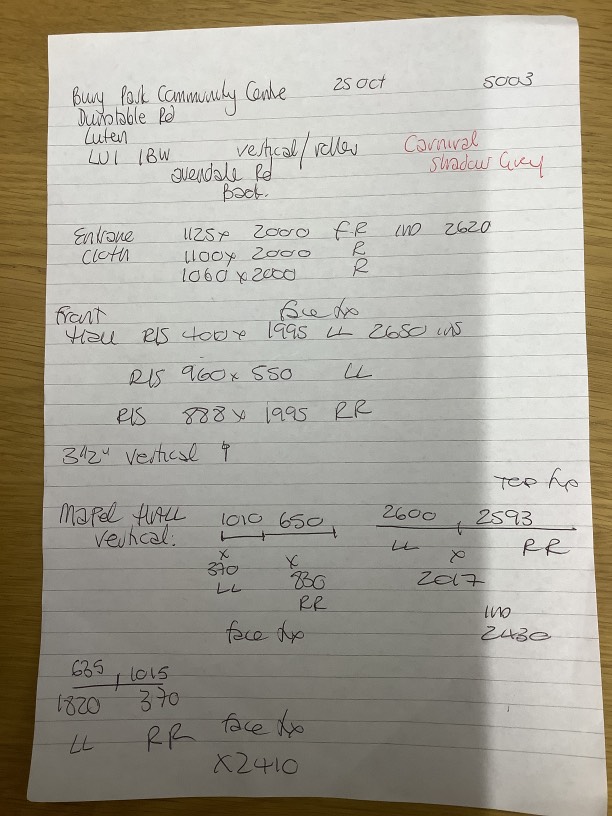 Bury Park Community Centre 25 Oct 5003
Dunstable Rd
Luten
LU1 1BW vertical/roller Carnival
avendale Rd shadow Grey
Back.
Entrane 1125x 2000 F.R ins 2620
Cloth 1100x 2000 R
1060 x 2000 R
Front face fix
Hall RIS 400x 1995 LL 2650 ins
RIS 960x 550 LL
RIS 888 x 1995 RR
3 1/2" vertical
Top fix
Mapel HALL 1010 650 2600 2593
Vertical: x x LL x RR
370 830 2017
LL RR ins
face fix 2430
635 1015
1820 370
LL RR face fix
X2410